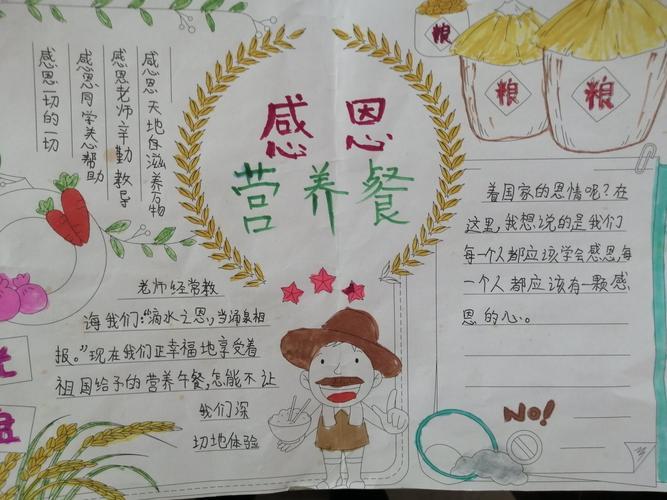 感恩 天地自滋养万物
感恩老师辛勤教导
感恩同学关心帮助
感恩一切的一切
感恩
营养餐
粮
粮
粮
老师经常教
诲我们:“滴水之恩,当涌泉相
报。”现在我们正幸福地享受着
祖国给予的营养午餐,怎能不让
我们深
切地体验
着国家的恩情呢?在
这里,我想说的是我们
每一个人都应该学会感恩,每
一个人都应该有一颗感
恩的心。
NO!